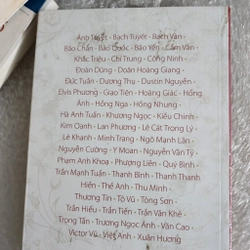 Ánh Tuyết - Bạch Tuyết - Bạch Vân -
Bảo Chấn - Bảo Quốc - Bảo Yến - Cẩm Vân -
Khắc Triệu - Chí Trung - Công Ninh -
Đoàn Dũng - Đoàn Hoàng Giang -
Đức Tuấn - Dương Thụ - Dustin Nguyễn -
Elvis Phương - Giao Tiên - Hoàng Giác - Hồng
Ánh - Hồng Nga - Hồng Nhung -
Hà Anh Tuấn - Khương Ngọc - Kiều Chinh -
Kim Oanh - Lan Phương - Lê Cát Trọng Lý -
Lê Khanh - Minh Trang - Ngô Mạnh Lân -
Nguyễn Cường - Y Moan - Nguyễn Văn Tý -
Phạm Anh Khoa - Phượng Liên - Quý Bình -
Trần Mạnh Tuấn - Thanh Bình - Thanh Thanh
Hiền - Thế Anh - Thu Minh -
Thương Tín - Tô Vũ - Tòng Sơn -
Trần Hiếu - Trần Tiến - Trần Văn Khê -
Trọng Tấn - Trương Ngọc Ánh - Văn Cao -
Victor Vũ - Việt Anh - Xuân Hương